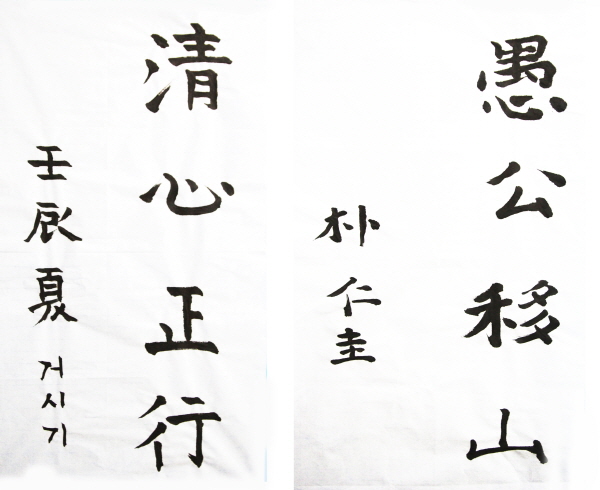 愚公移山
朴仁圭
清心正行
壬辰夏 거시기